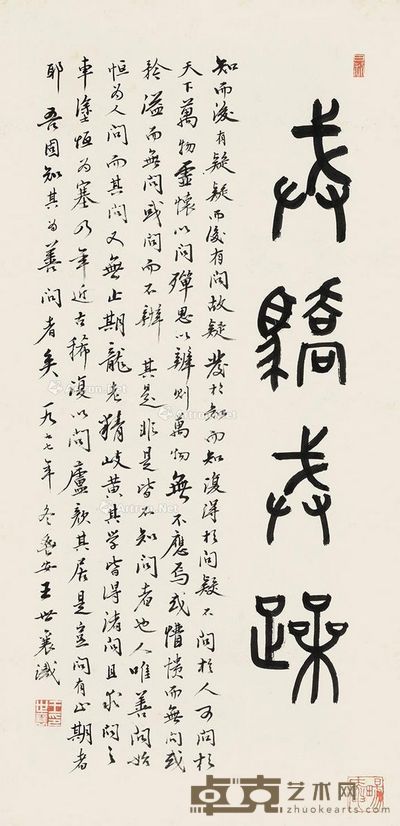 戒驕戒躁
知而後有疑疑而後有問故疑發於知而知復得於問疑不問於人可問於
天下萬物虛懷以問殫思以辨則萬物無不應焉或懵憒而無問或
矜溢而無問或問而不辨其是非是皆不知問者也人唯善問始
恒為人問而其問又無止期龍老精岐黃其学皆得諸問且求問之
車塗恒為塞乃年近古稀復以問廬顏其居是豈問有止期者
耶吾固知其為善問者矣一九七七年冬鬯安王世襄識
卓克艺术网
zhuokearts.com